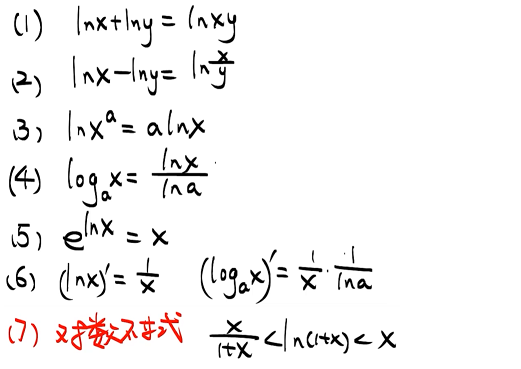 (1) lnx+lny=lnxy
(2) lnx-lny=ln\frac{x}{y}
(3) lnx^a=alnx
(4) log_a x=\frac{lnx}{lna}
(5) e^{lnx}=x
(6) (lnx)'=\frac{1}{x} (log_a x)'=\frac{1}{x}·\frac{1}{lna}
(7) 对数不等式 \frac{x}{1+x}<ln(1+x)<x